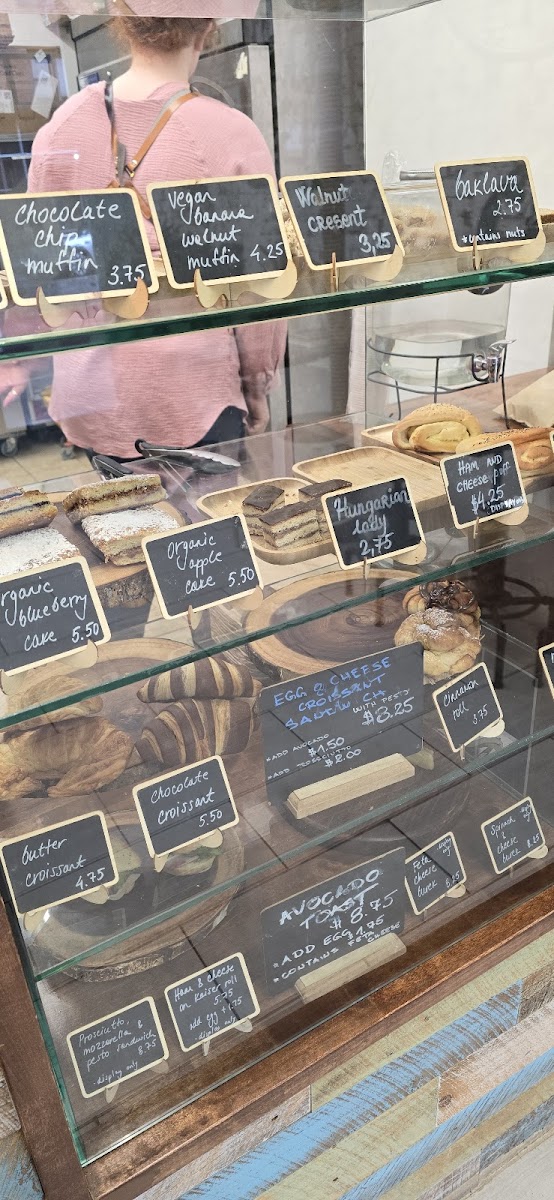 chocolate
chip
muffin 3.75
vegan
banana
walnut
muffin 4.25
Walnut
cresent
3,25
baklava
2.75
*contains nuts
organic
blueberry
cake 5.50
organic
apple
cake 5.50
Hungarian
lady
2,75
HAM AND
CHEESE puff
$4.25
butter
croissant
4.75
chocolate
croissant
5.50
EGG & CHEESE
CROISSANT
SANDWICH
WITH PESTO
$8.25
*ADD AVOCADO
$1.50
*ADD PROSCIUTTO
$2.00
Cinnamon
roll
3.75
Prosciutto,
mozzarella &
pesto sandwich
8.75
- display only
Ham & cheese
on kaiser roll
5.75
add egg +1.75
- display only
AVOCADO
TOAST
$8.75
*ADD EGG $1.75
*CONTAINS FETA CHEESE
Feta
cheese
burek
Spinach
&
cheese
burek 8.25